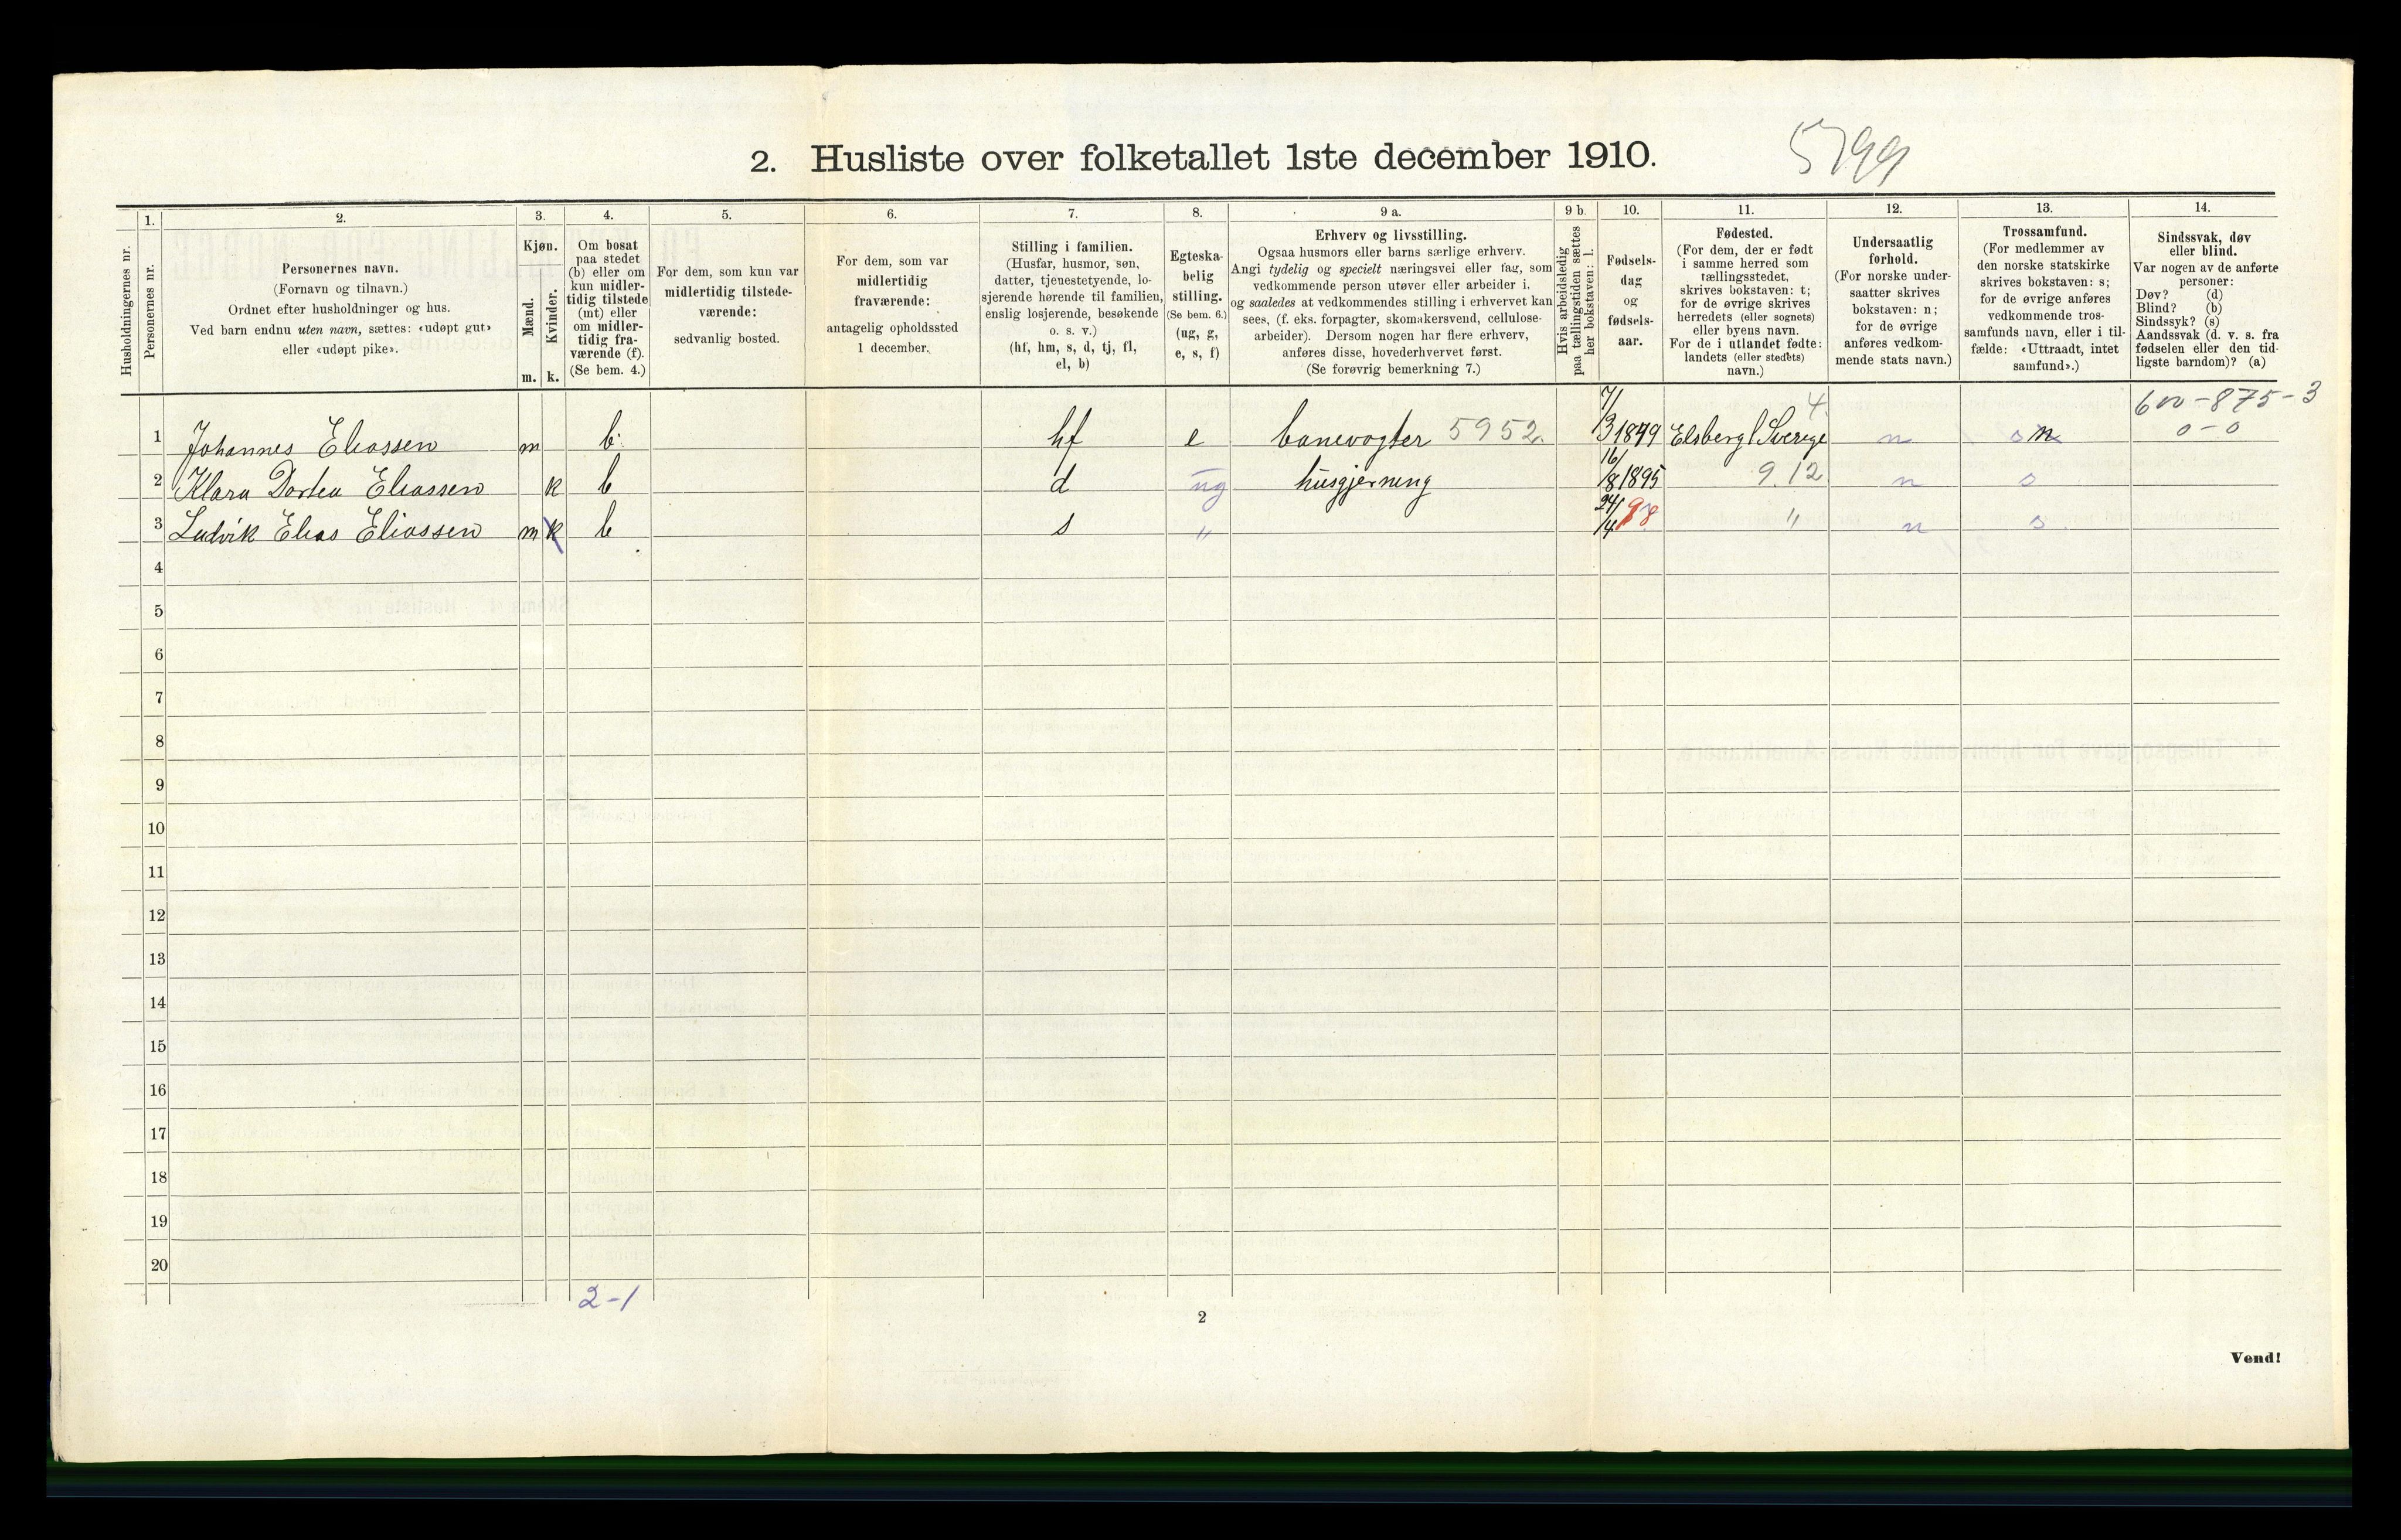 2. Husliste over folketallet 1ste december 1910.
5799
Husholdningernes nr.
1.
Personernes nr.
2.
Personernes navn.
(Fornavn og tilnavn.)
Ordnet efter husholdninger og hus.
Ved barn endnu uten navn, sættes: «udøpt gut»
eller «udøpt pike».
3.
Kjøn.
Mænd.
Kvinder.
m. k.
4.
Om bosat
paa stedet
(b) eller om
kun midler-
tidig tilstede
(mt) eller
om midler-
tidig fra-
værende (f).
(Se bem. 4.)
5.
For dem, som kun var
midlertidig tilstede-
værende:
sedvanlig bosted.
6.
For dem, som var
midlertidig
fraværende:
antagelig opholdssted
1 december.
7.
Stilling i familien.
(Husfar, husmor, søn,
datter, tjenestetyende, lo-
sjerende hørende til familien,
enslig losjerende, besøkende
o. s. v.)
(hf, hm, s, d, tj, fl,
el, b)
8.
Egteska-
belig
stilling.
(Se bem. 6.)
(ug, g,
e, s, f)
9 a.
Erhverv og livsstilling.
Ogsaa husmors eller barns særlige erhverv.
Angi tydelig og specielt næringsvei eller fag, som
vedkommende person utøver eller arbeider i,
og saaledes at vedkommendes stilling i erhvervet kan
sees, (f. eks. forpagter, skomakersvend, cellulose-
arbeider). Dersom nogen har flere erhverv,
anføres disse, hovederhvervet først.
(Se forøvrig bemerkning 7.)
9 b.
Hvis arbeidsledig
paa tællingstiden sættes
her bokstaven: l.
10.
Fødsels-
dag
og
fødsels-
aar.
11.
Fødested.
(For dem, der er født
i samme herred som
tællingsstedet,
skrives bokstaven: t;
for de øvrige skrives
herredets (eller sognets)
eller byens navn.
For de i utlandet fødte:
landets (eller stedets)
navn.)
12.
Undersaatlig
forhold.
(For norske under-
saatter skrives
bokstaven: n;
for de øvrige
anføres vedkom-
mende stats navn.)
13.
Trossamfund.
(For medlemmer av
den norske statskirke
skrives bokstaven: s;
for de øvrige anføres
vedkommende tros-
samfunds navn, eller i til-
fælde: «Uttraadt, intet
samfund».)
14.
Sindssvak, døv
eller blind.
Var nogen av de anførte
personer:
Døv? (d)
Blind? (b)
Sindssyk? (s)
Aandssvak (d. v. s. fra
fødselen eller den tid-
ligste barndom)? (a)
4. 600-875-3
1 Johannes Eliassen m b hf e banevogter 5952. 7/3 1849 Elsberg / Sverige n s n 0-0
2 Klara Dortea Eliassen k b d ug husgjerning 16/8 1895 9.12 n s
3 Ludvik Elias Eliassen m k b s " 24/4 98 " n s
4
5
6
7
8
9
10
11
12
13
14
15
16
17
18
19
20
2-1
2
Vend!